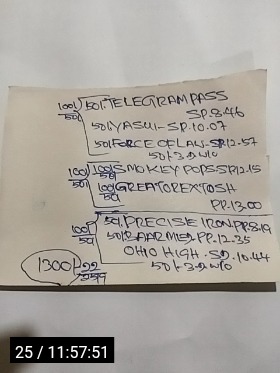 100/50 50/. TELEGRAM PASS
SP.8.46
50/. YASUI - SP.10.07
50/. FORCE OF LAW - SP.12.57
50/- 3-2 W/O
100/50 100/50 SMOKEY POPS SP.12.15
100/50 GREATOREXTOSH
PP.13.00
100/50 50/. PRECISE IRON PP.8.19
50/. BAARMIES PP.12.35
OHIO HIGH - SP.10.44
50/- 3-2 W/O
1300/-
25 / 11:57:51